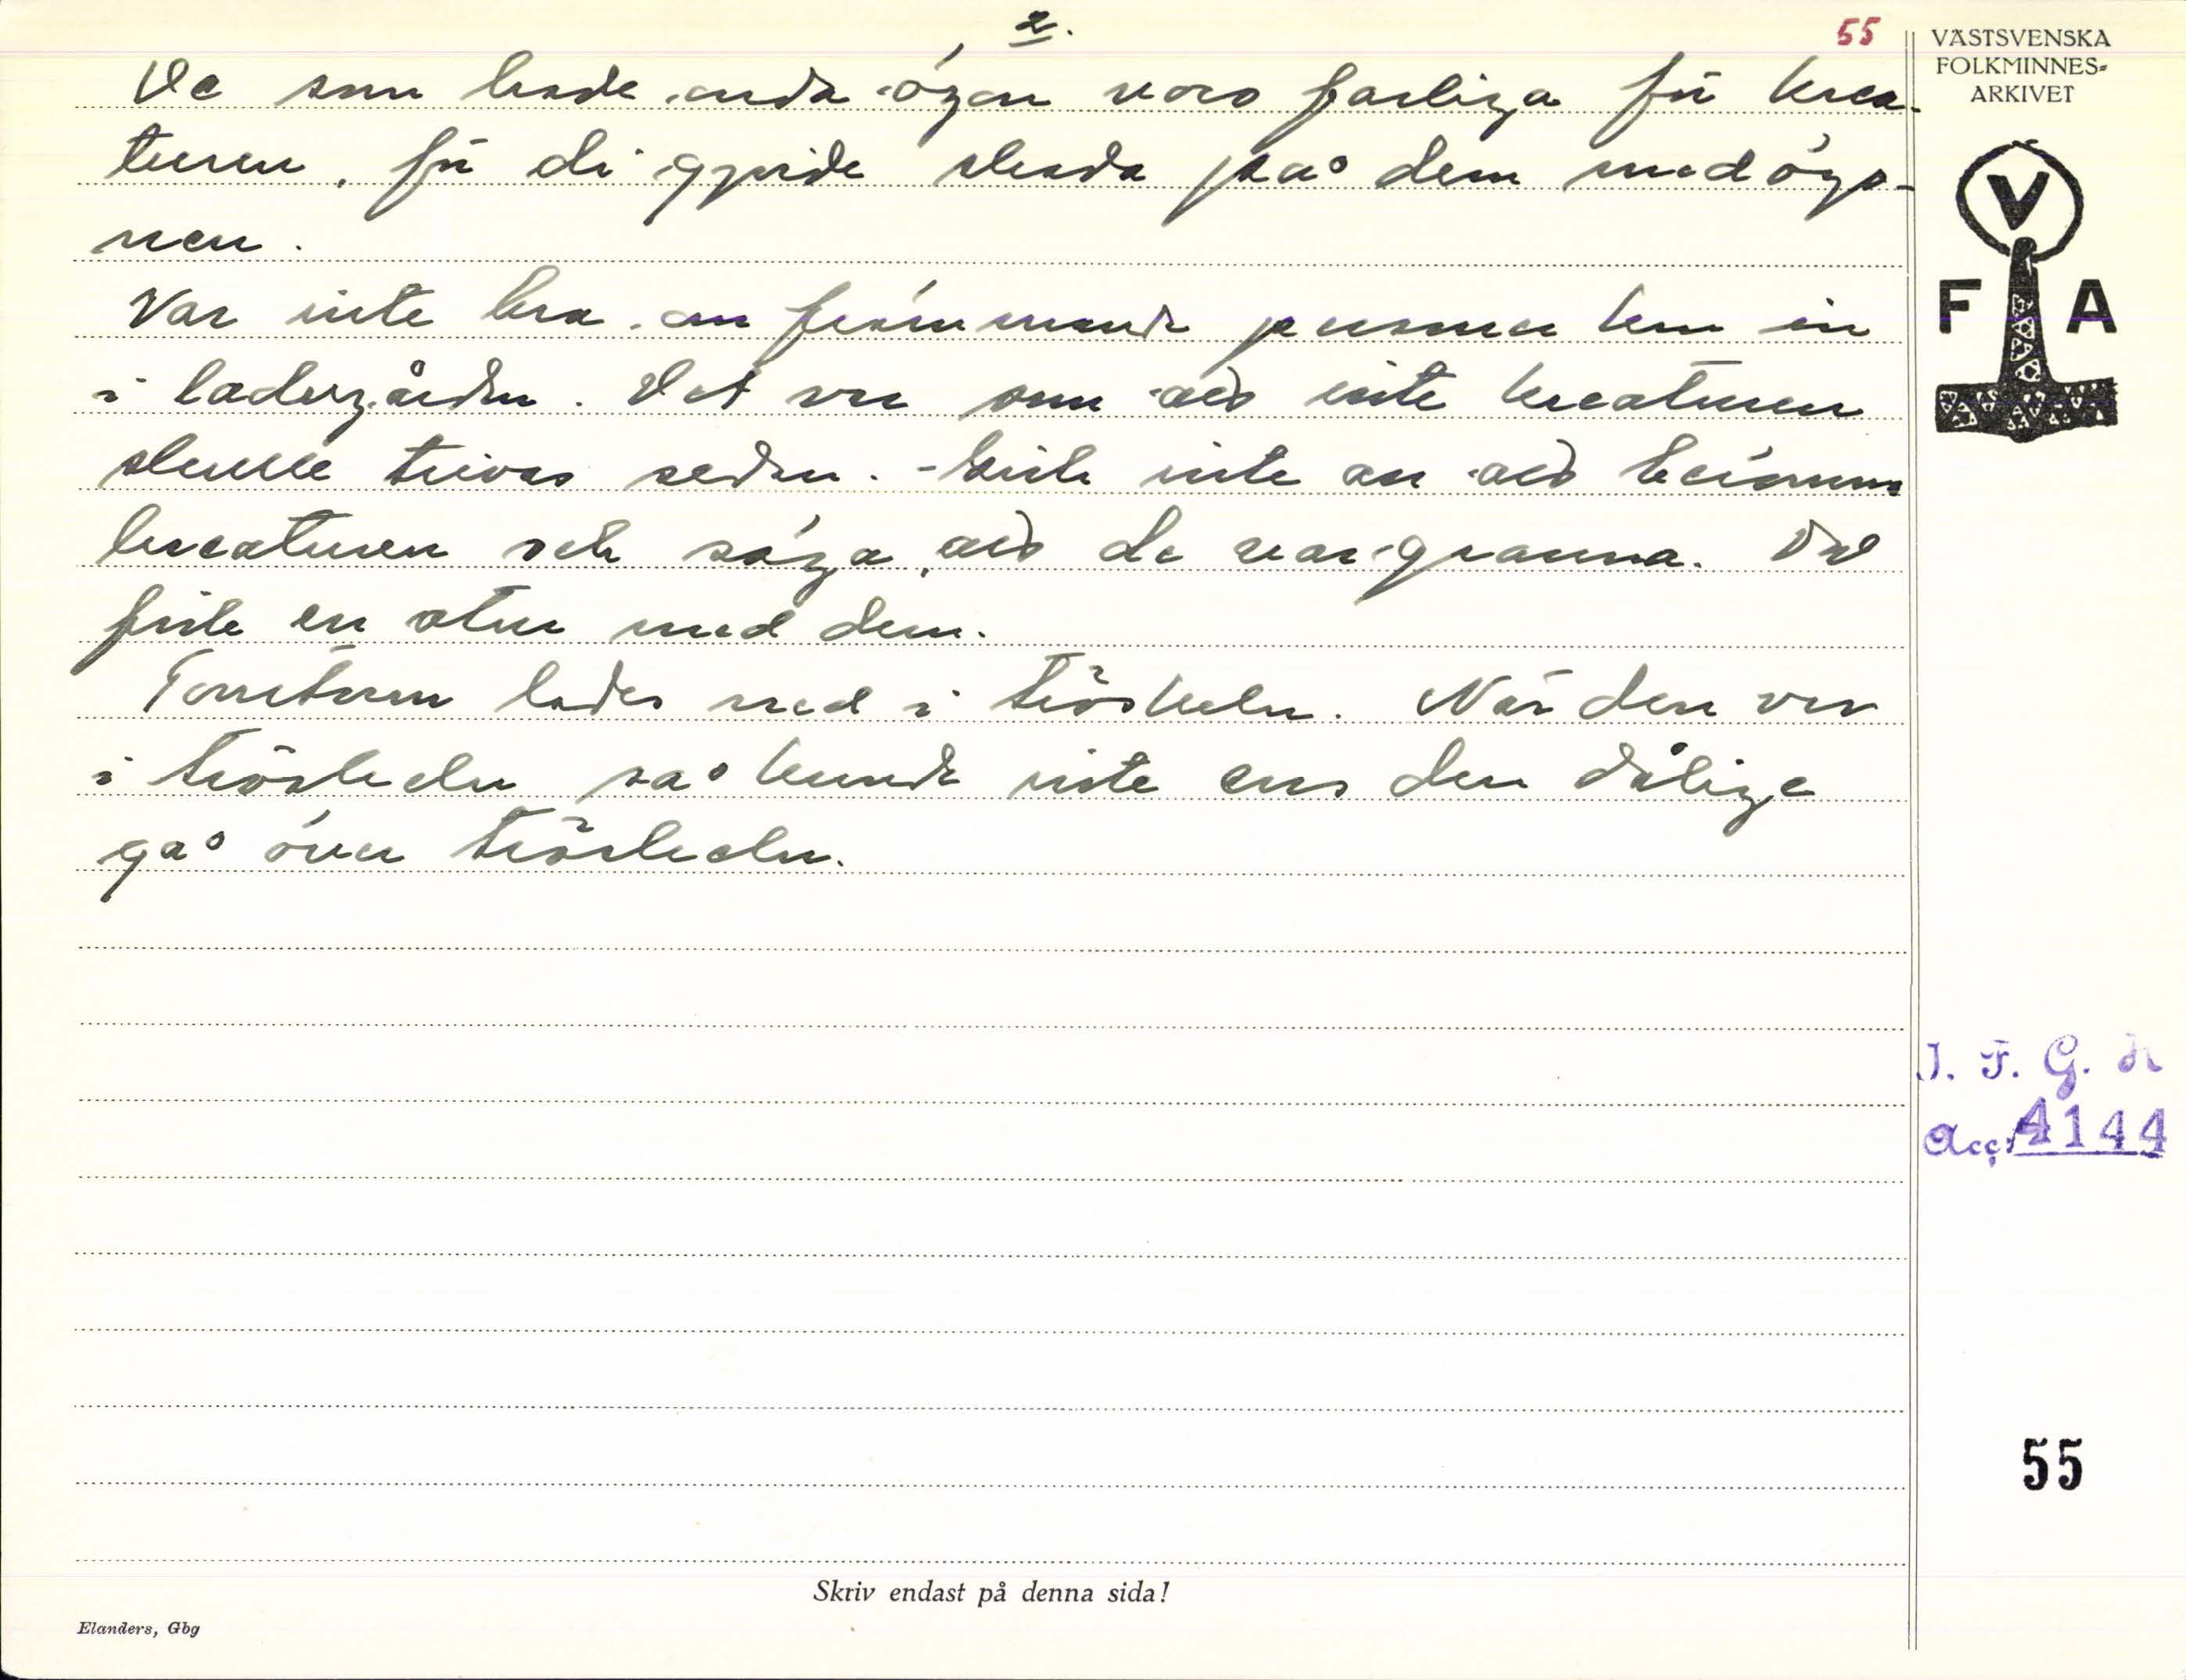 2.
55
De som hade onda ögon voro farliga för krea-
turen, för di gjorde skada på dem med ögo-
nen.
Var inte bra om främmande personer kom in
i ladugården. Det var som om inte kreaturen
skulle trivas sedan. - Fick inte en och berömma
kreaturen och säga, att de var granna. Det
förde en otur med dem.
Torsten lades ned i tröskeln. När den var
i tröskeln så kunde inte ens den dålige
gå över tröskeln.
Skriv endast på denna sida!
Elanders, Gbg
VÄSTSVENSKA
FOLKMINNES-
ARKIVET
V
F A
I. F. G. H
Acc: 4144
55